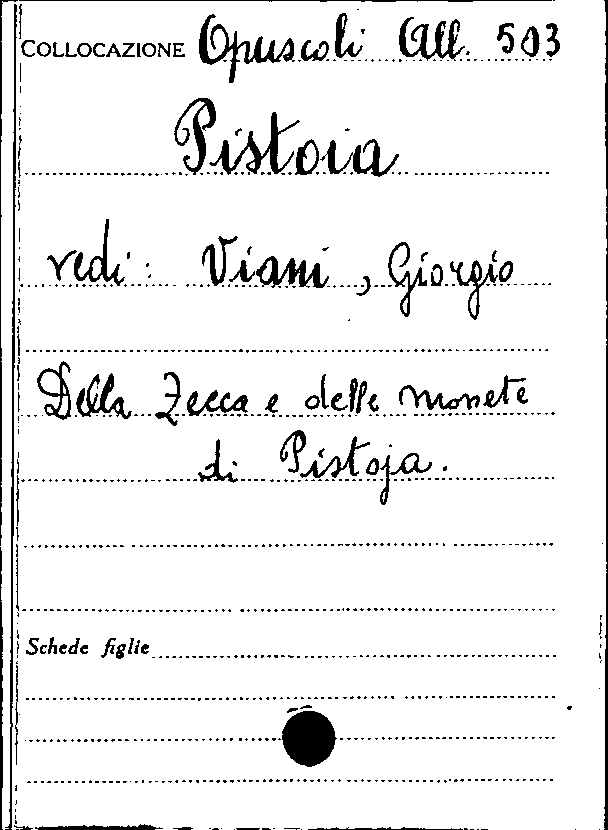 COLLOCAZIONE Opuscoli All. 503
Pistoia
vedi: Viani, Giorgio
Della Zecca e delle monete
di Pistoja.
Schede figlie